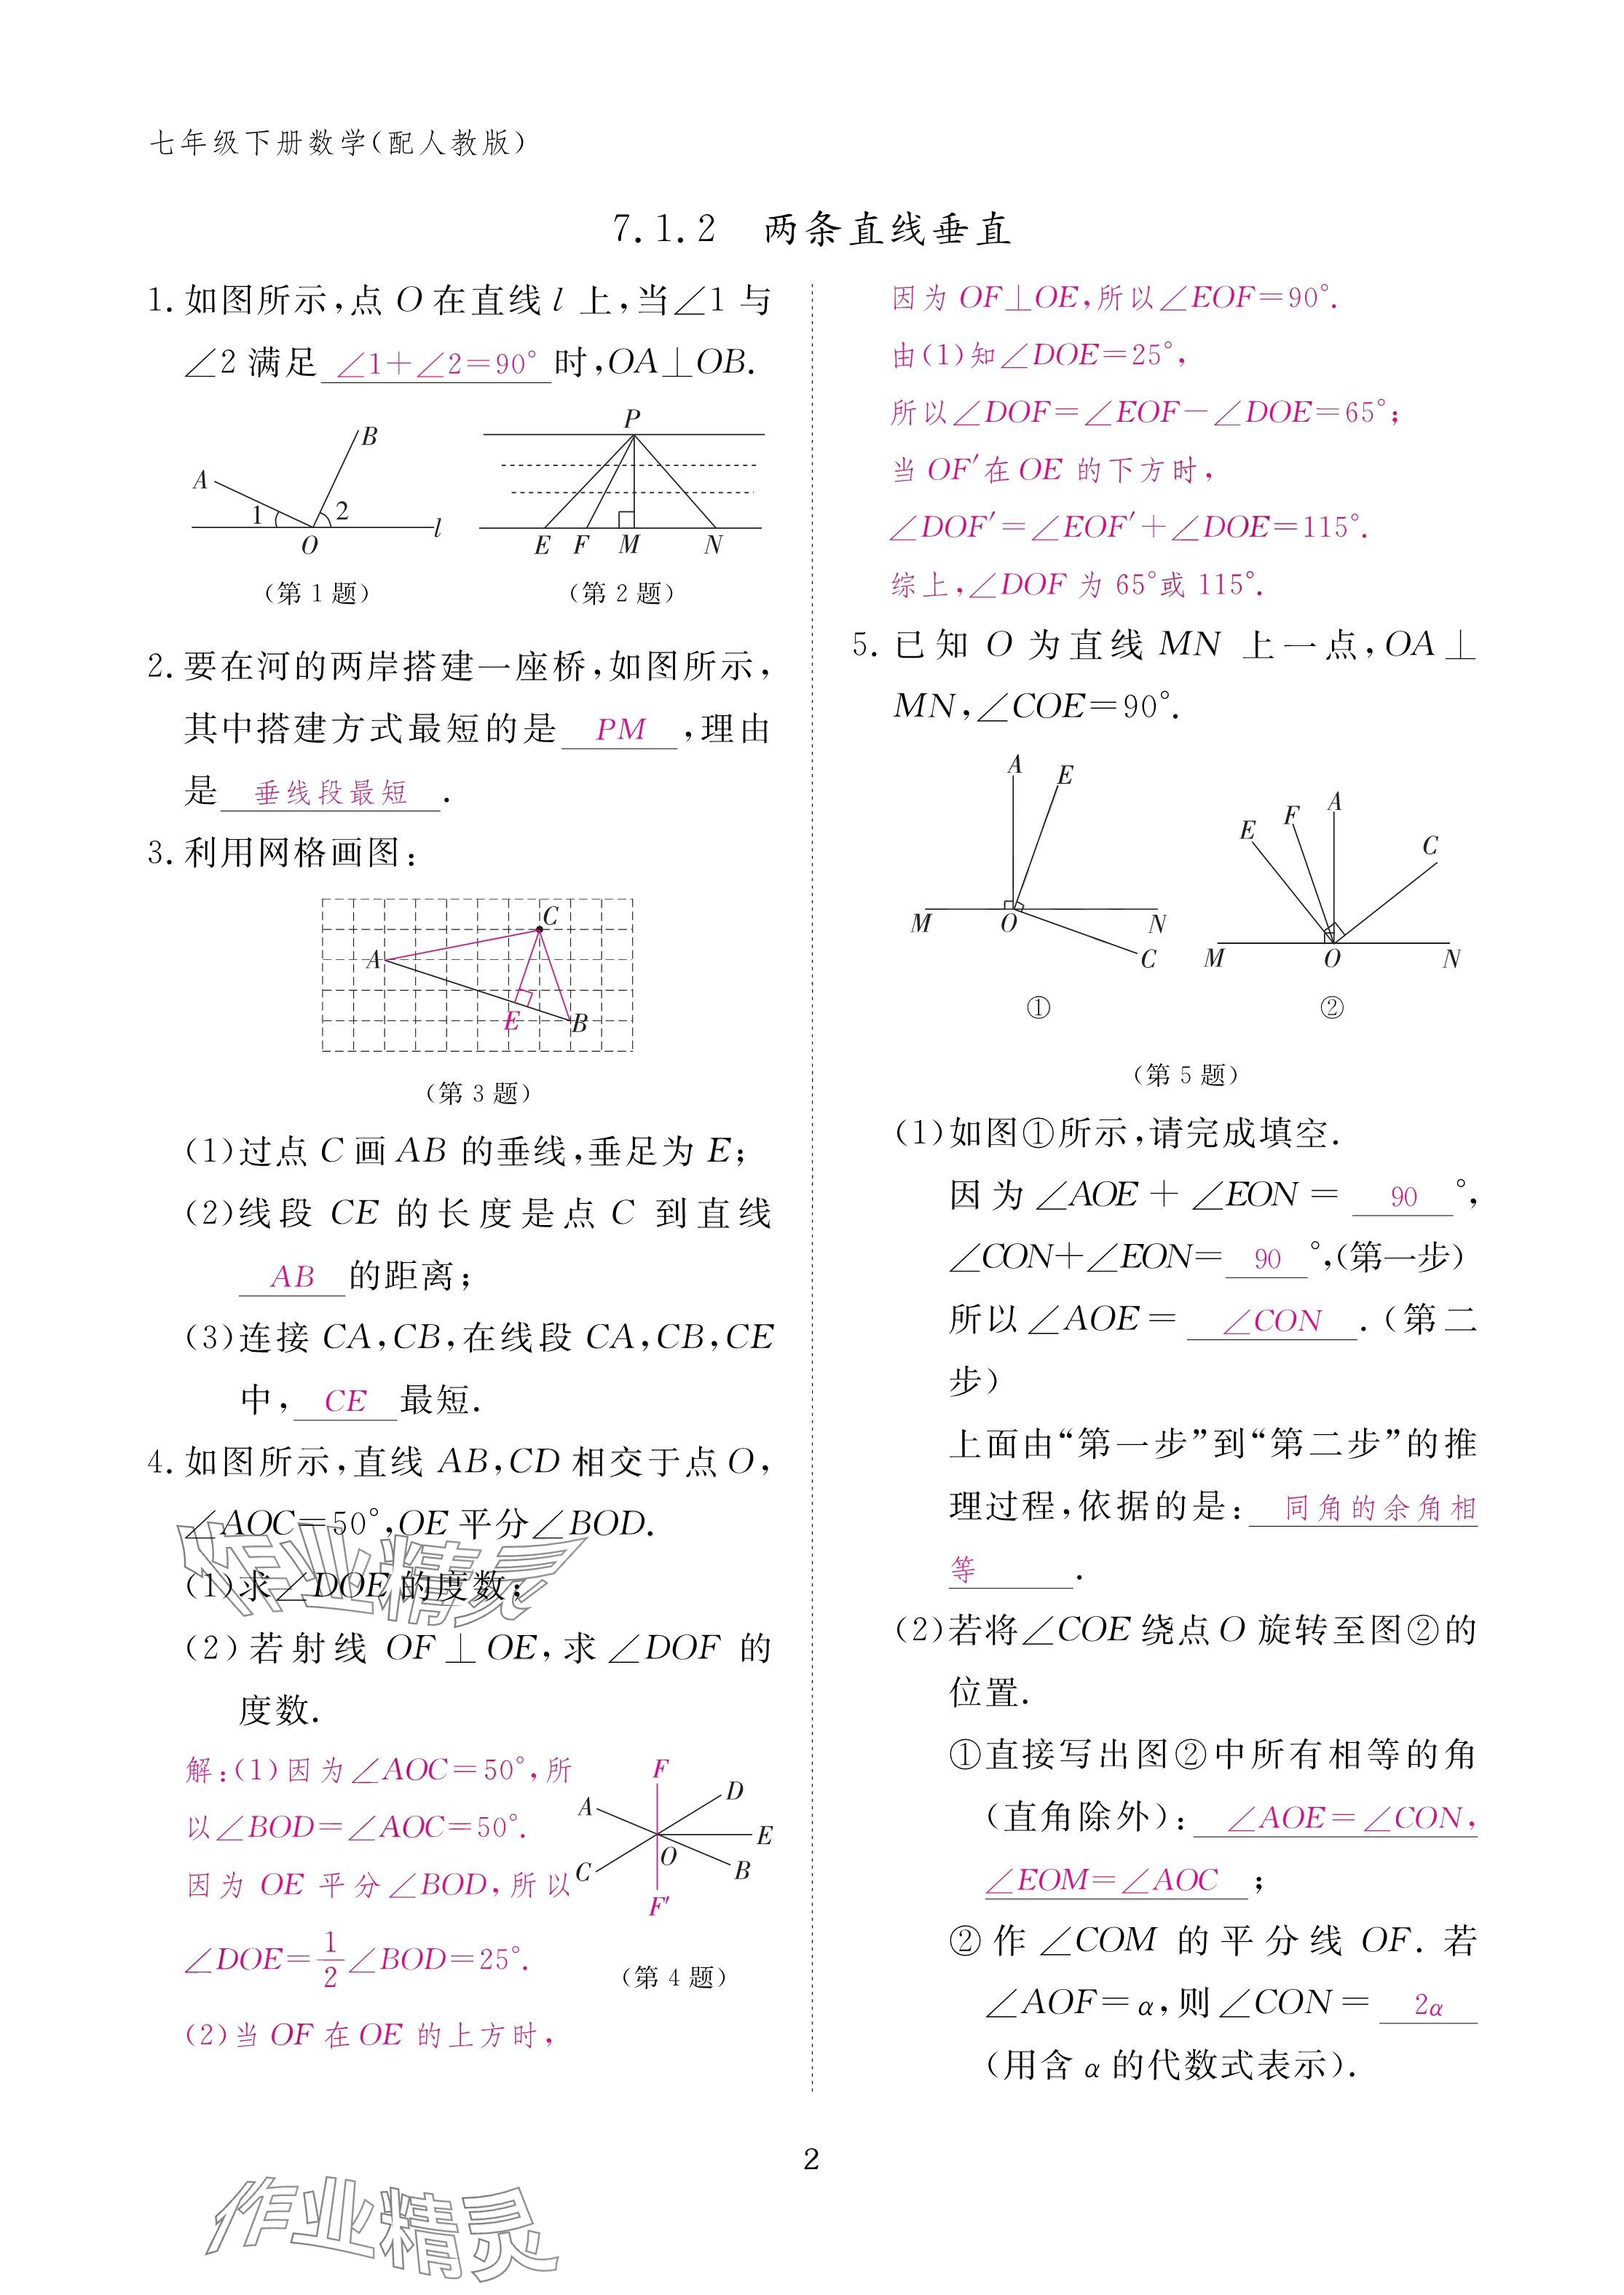 七年级下册数学(配人教版)
7.1.2 两条直线垂直
1. 如图所示,点 O 在直线 l 上,当∠1 与
∠2 满足 ∠1+∠2=90° 时,OA⊥OB.
A
B
1
2
l
O
(第 1 题)
P
E F M N
(第 2 题)
2. 要在河的两岸搭建一座桥,如图所示,
其中搭建方式最短的是 PM ,理由
是 垂线段最短 .
3. 利用网格画图:
C
A
E
B
(第 3 题)
(1)过点 C 画 AB 的垂线,垂足为 E;
(2)线段 CE 的长度是点 C 到直线
AB 的距离;
(3)连接 CA,CB,在线段 CA,CB,CE
中, CE 最短.
4. 如图所示,直线 AB,CD 相交于点 O,
∠AOC=50°,OE 平分∠BOD.
(1)求∠DOE 的度数;
(2)若射线 OF⊥OE,求∠DOF 的
度数.
解:(1)因为∠AOC=50°,所
以∠BOD=∠AOC=50°.
因为 OE 平分∠BOD,所以
∠DOE=1/2∠BOD=25°.
(2)当 OF 在 OE 的上方时,
F
A
D
E
O
C
B
F′
(第 4 题)
作业精灵
因为 OF⊥OE,所以∠EOF=90°.
由(1)知∠DOE=25°,
所以∠DOF=∠EOF-∠DOE=65°;
当 OF′在 OE 的下方时,
∠DOF′=∠EOF′+∠DOE=115°.
综上,∠DOF 为 65°或 115°.
5. 已知 O 为直线 MN 上一点,OA⊥
MN,∠COE=90°.
A
E
M
O
N
C
①
A
F
E
C
M
O
N
②
(第 5 题)
(1)如图①所示,请完成填空.
因为∠AOE+∠EON= 90 °,
∠CON+∠EON= 90 °,(第一步)
所以∠AOE= ∠CON .(第二
步)
上面由“第一步”到“第二步”的推
理过程,依据的是: 同角的余角相
等 .
(2)若将∠COE 绕点 O 旋转至图②的
位置.
①直接写出图②中所有相等的角
(直角除外): ∠AOE=∠CON,
∠EOM=∠AOC ;
②作∠COM 的平分线 OF. 若
∠AOF=α,则∠CON= 2α
(用含 α 的代数式表示).
2
作业精灵